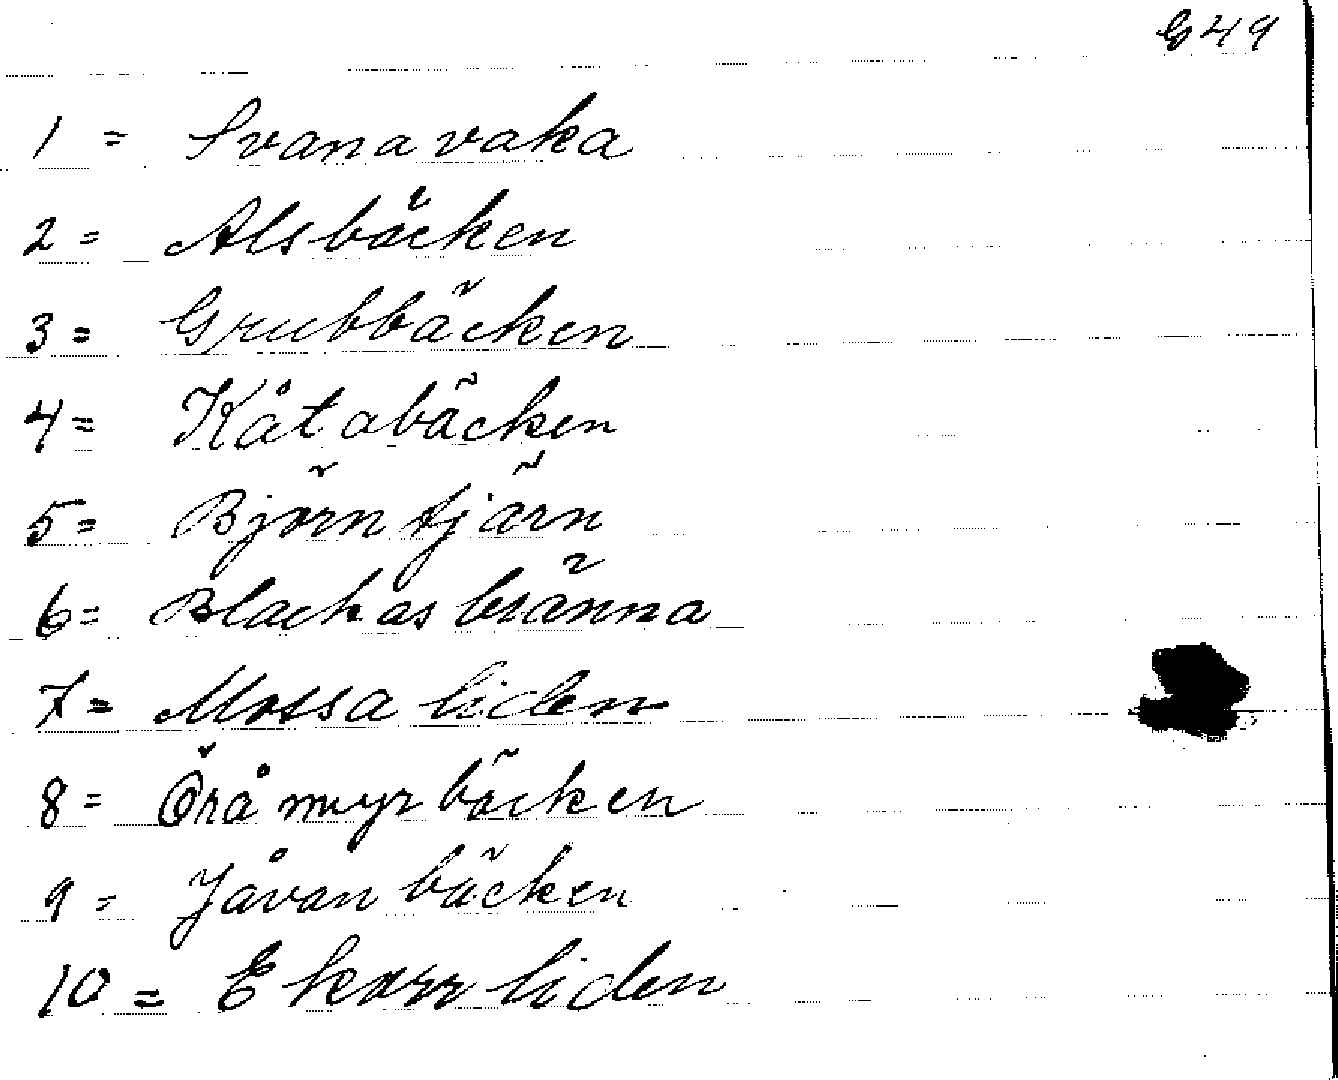 G49
1 = Svanavaka
2 = Alsbäcken
3 = Grubbäcken
4 = Kåtabäcken
5 = Björntjärn
6 = Blackasbränna
7 = Mossaliden
8 = Öråmyrbäcken
9 = Jåvanbäcken
10 = Ekorrliden